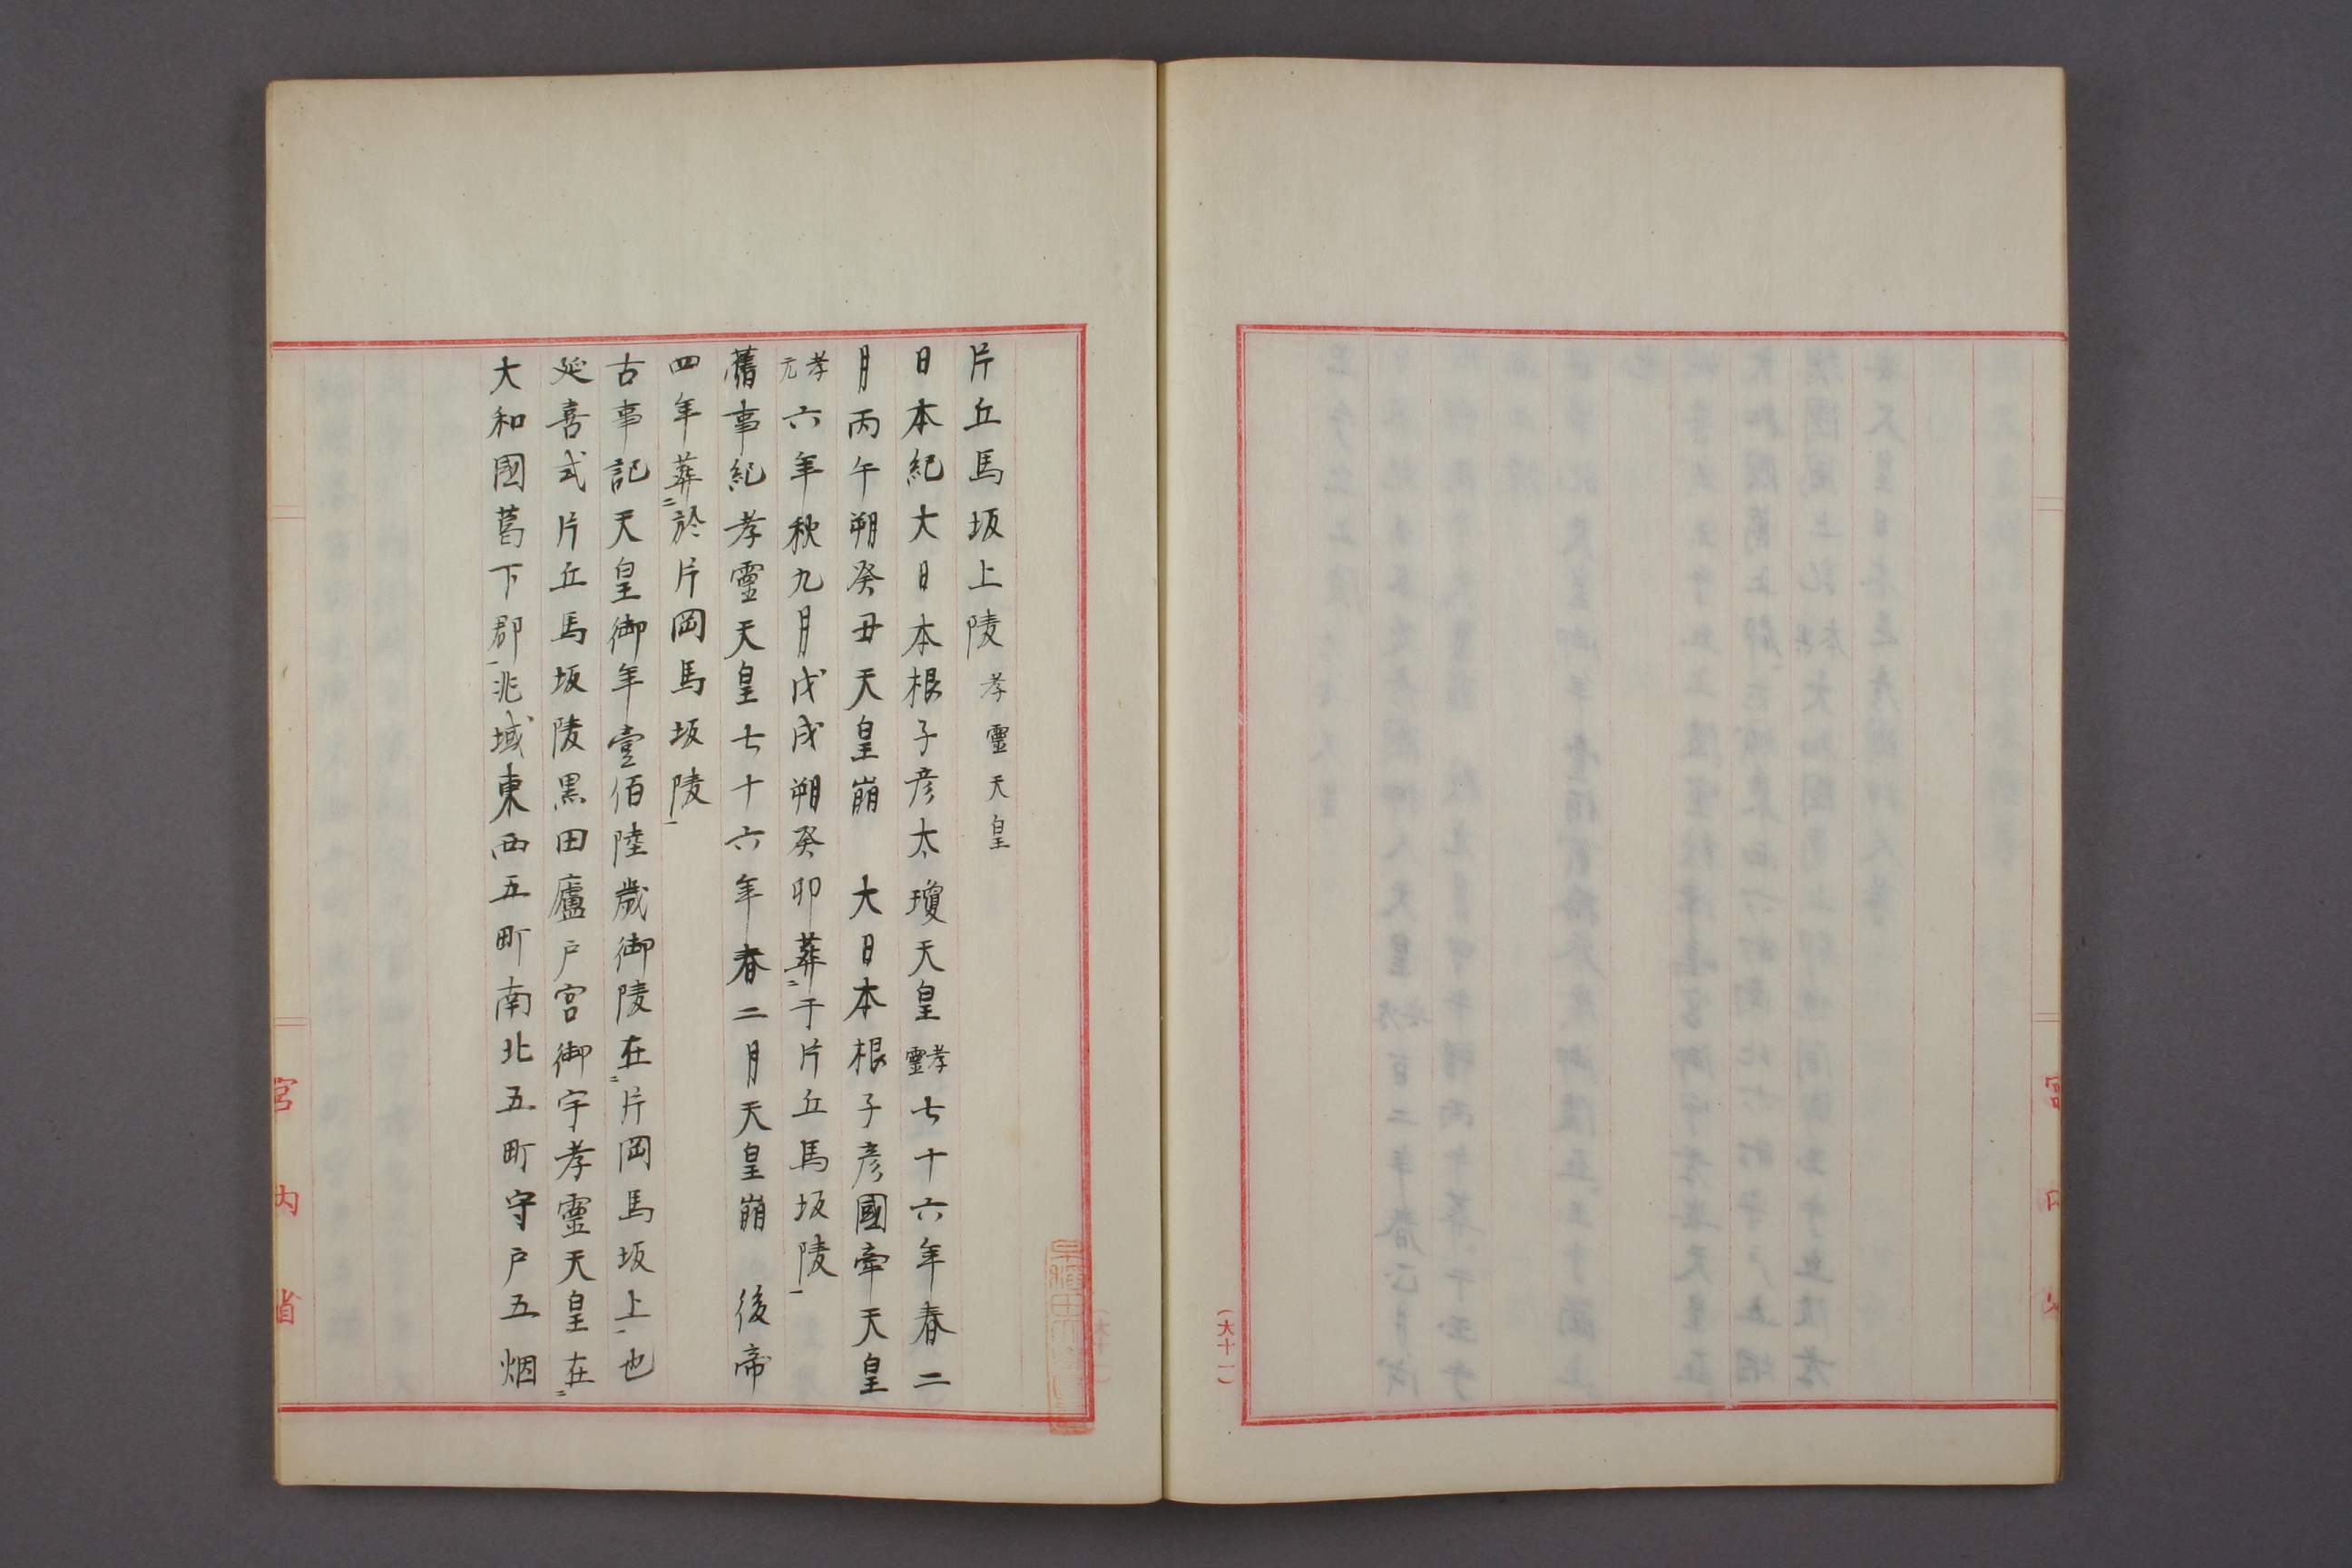 片丘馬坂上陵 孝靈天皇
日本紀大日本根子彦太瓊天皇孝靈七十六年春二
月丙午朔癸丑天皇崩 大日本根子彦國牽天皇
孝元六年秋九月戊戌朔癸卯葬于片丘馬坂陵
舊事紀孝靈天皇七十六年春二月天皇崩 後帝
四年葬於片岡馬坂陵
古事記天皇御年壹佰陸歳御陵在片岡馬坂上也
延喜式片丘馬坂陵黒田廬戸宮御宇孝靈天皇在
大和國葛下郡兆域東西五町南北五町守戸五烟
宮内省
(大十一)